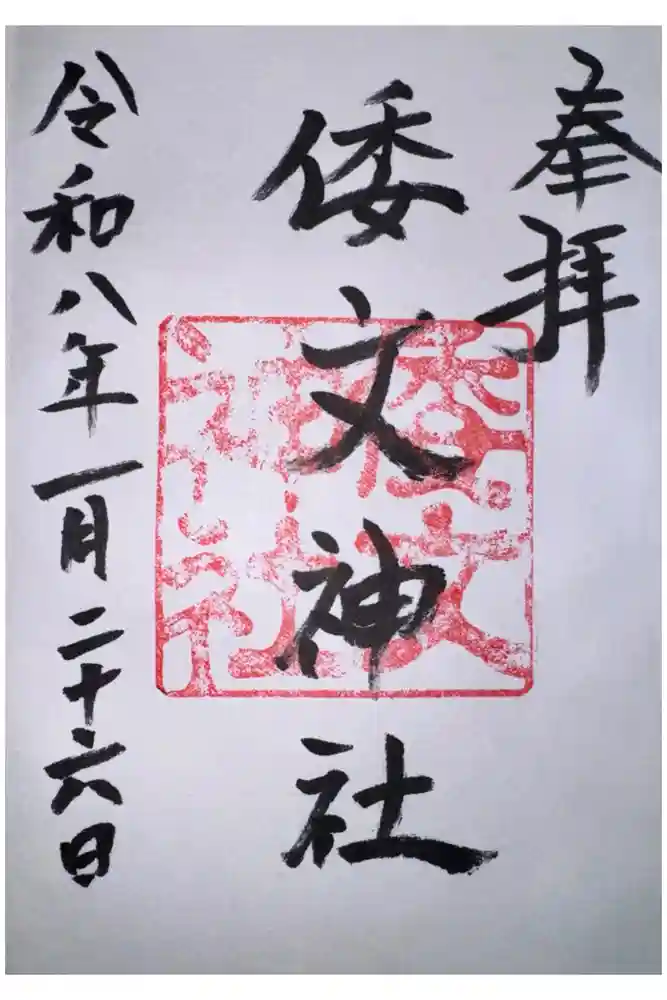 奉拝
倭文神社
倭文
神社
令和八年一月二十六日